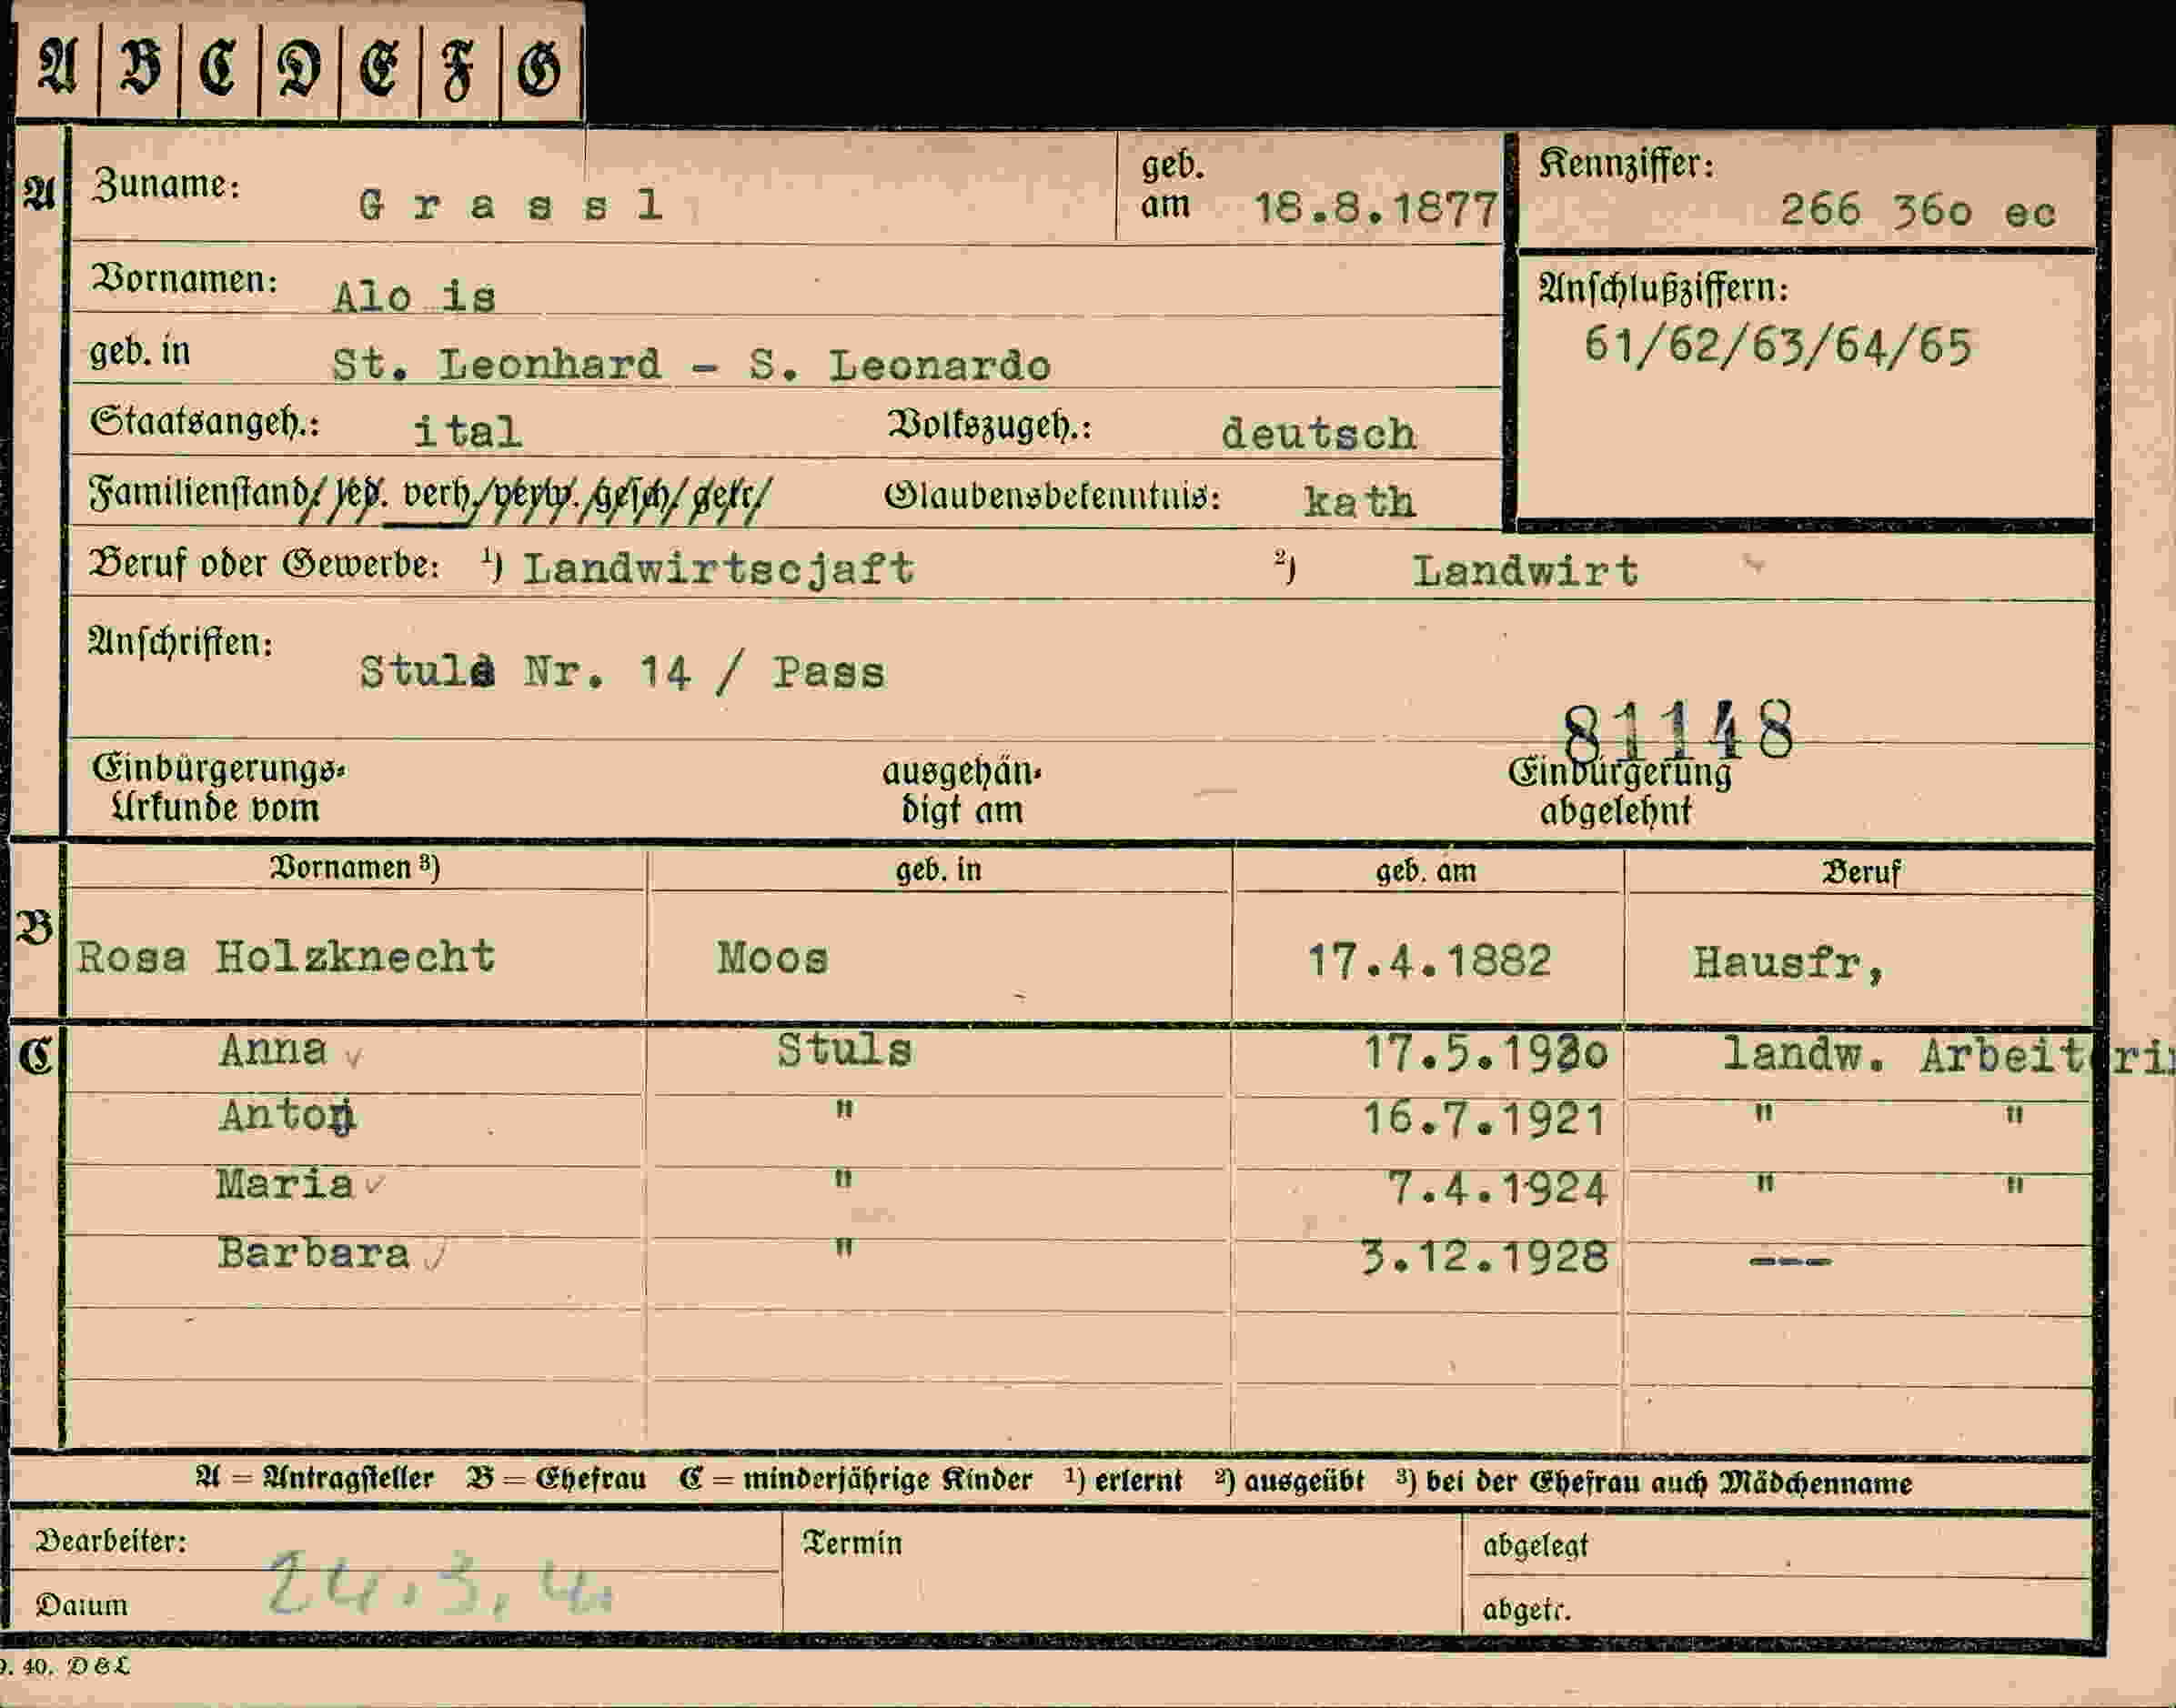 A B C D E F G
A Zuname: Grassl geb. am 18.8.1877 Kennziffer: 266 36o ec
Vornamen: Alo is Anschlußziffern:
61/62/63/64/65
geb. in St. Leonhard - S. Leonardo
Staatsangeh.: ital Volkszugeh.: deutsch
Familienstand: led. verh. verw. gesch. getr. Glaubensbekenntnis: kath
Beruf oder Gewerbe: 1) Landwirtscjaft 2) Landwirt
Anschriften: Stuls Nr. 14 / Pass
81148
Einbürgerungs- ausgehän- Einbürgerung
Urkunde vom digt am abgelehnt
Vornamen 3) geb. in geb. am Beruf
B Rosa Holzknecht Moos 17.4.1882 Hausfr,
C Anna Stuls 17.5.192o landw. Arbeiteri
Anton " 16.7.1921 " "
Maria " 7.4.1924 " "
Barbara " 3.12.1928 ---
A = Antragsteller B = Ehefrau C = minderjährige Kinder 1) erlernt 2) ausgeübt 3) bei der Ehefrau auch Mädchenname
Bearbeiter: Termin abgelegt
24.3.4.
Datum abgetr.
9. 40. D&L